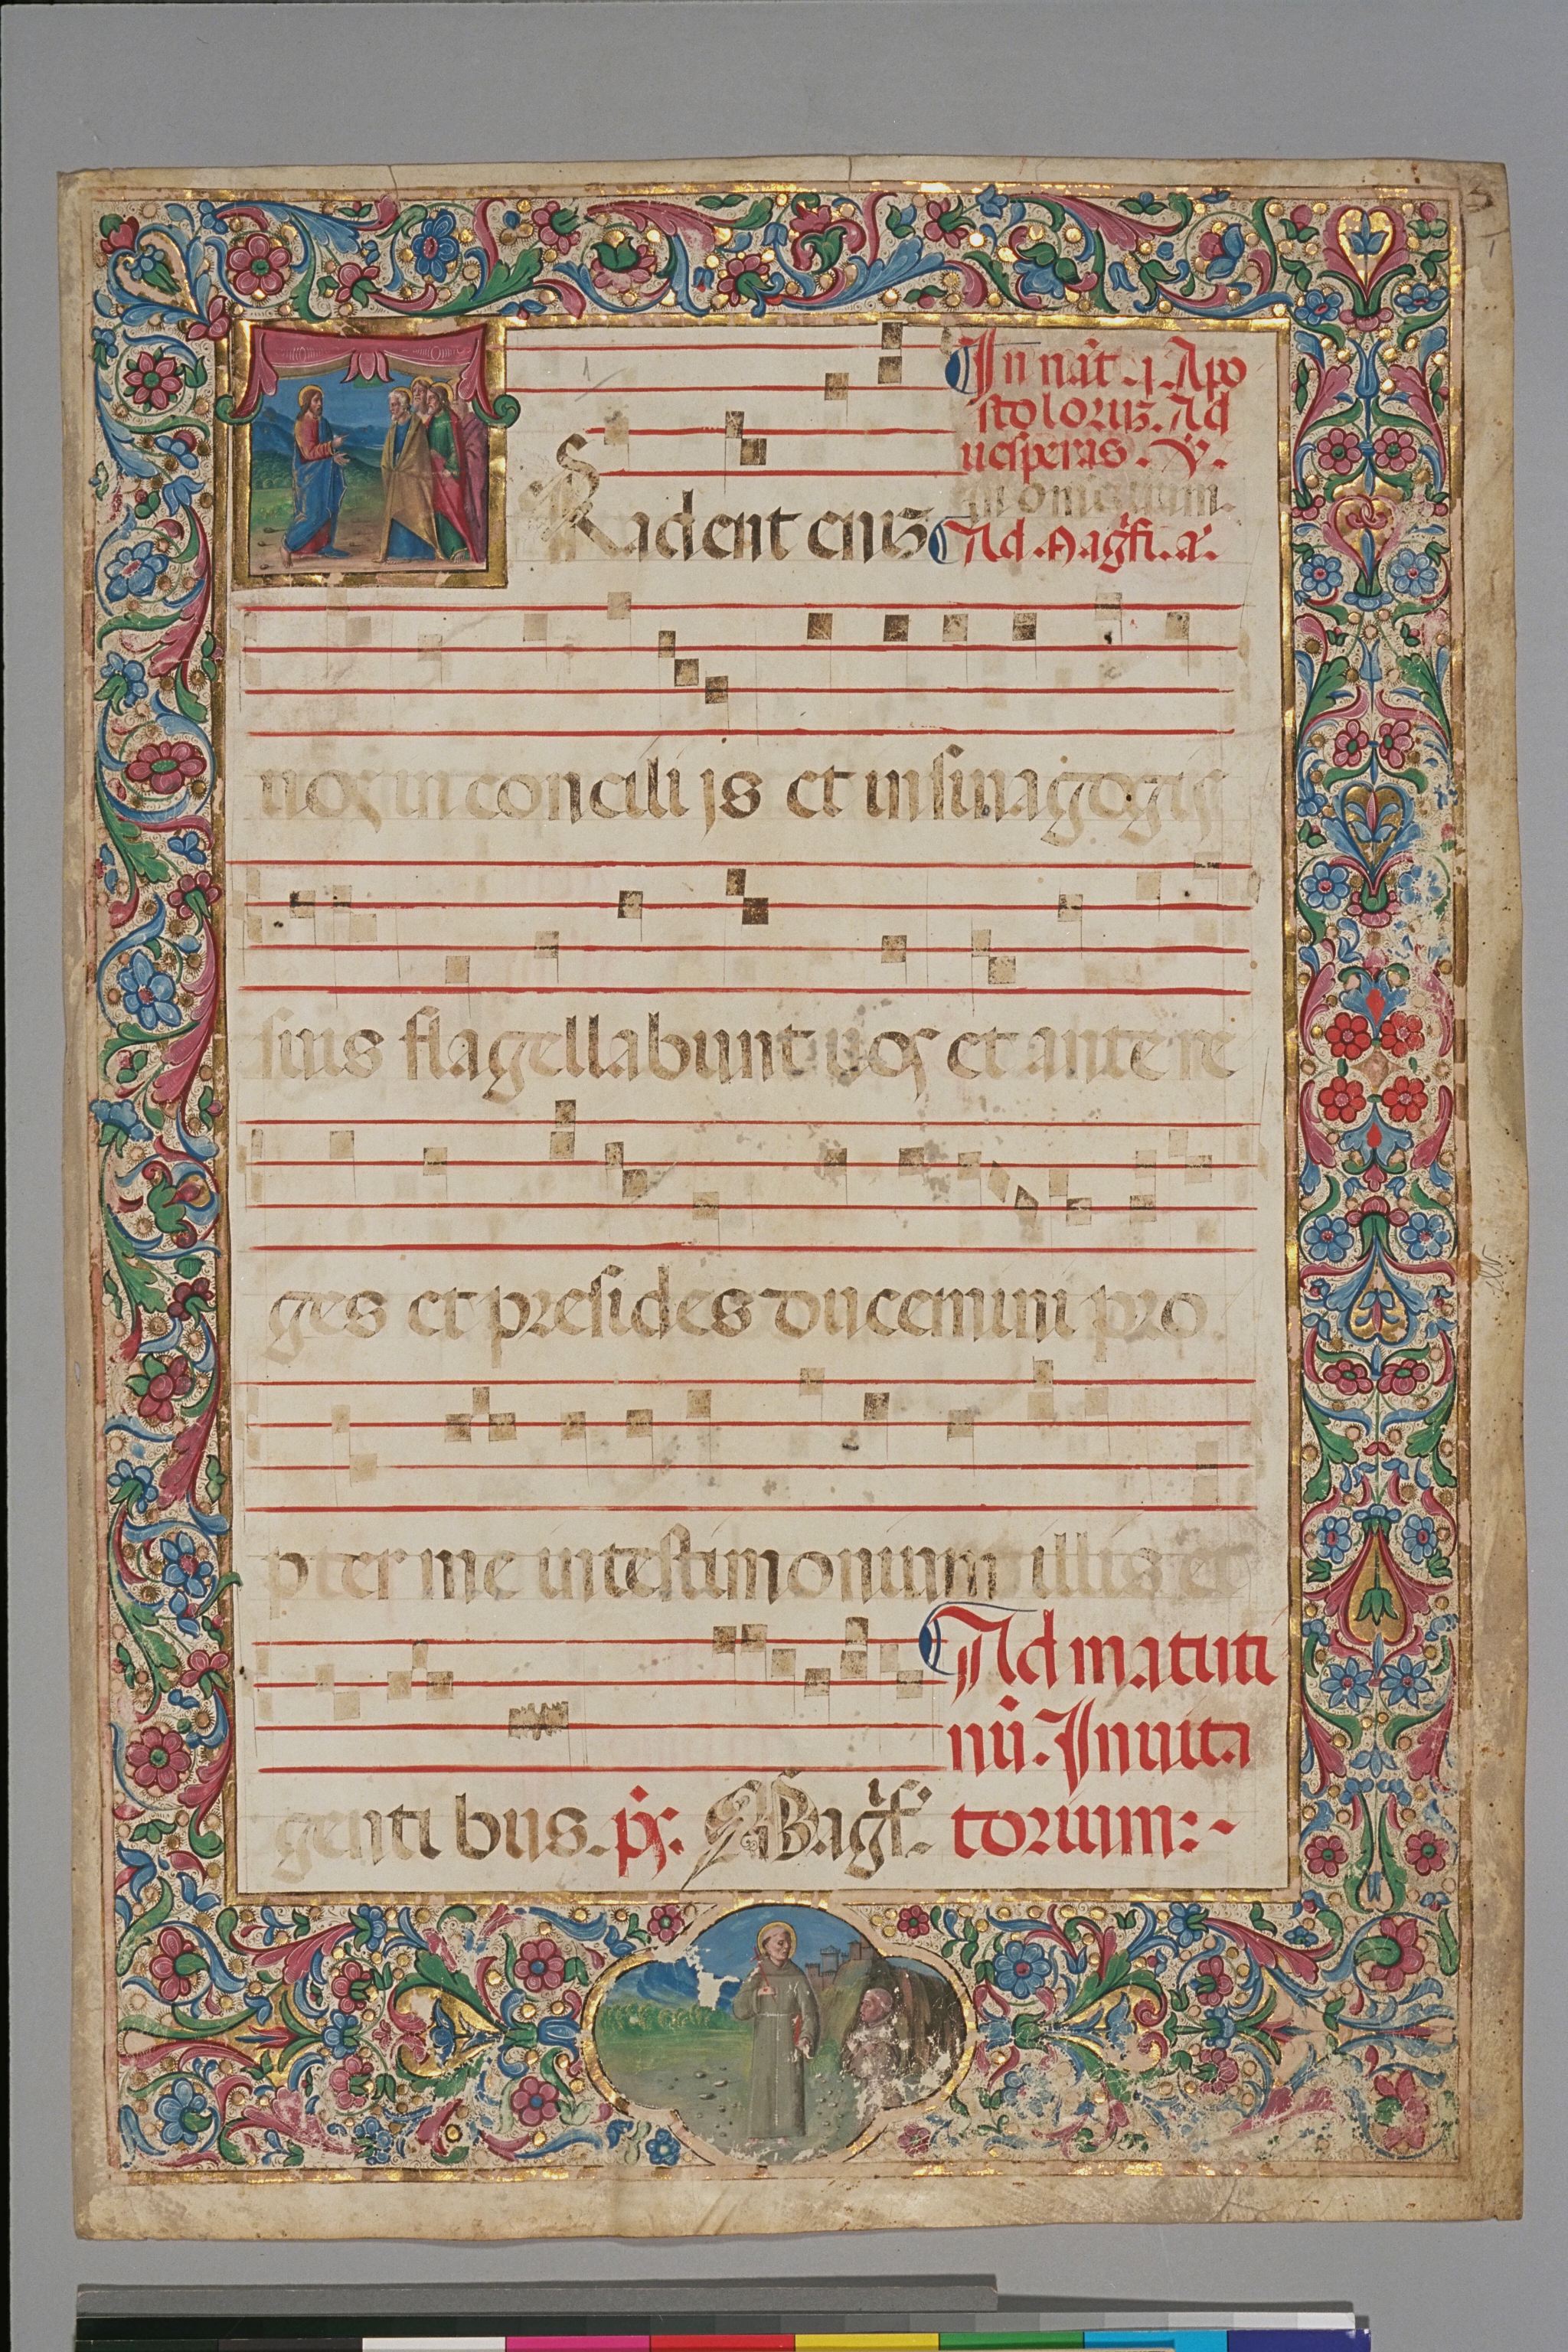 In nat̄. j. Apo
stoloruʒ. Ad
uesperas. ℣.
Radent eniʒ
Ad. Magfi. a.
uos in concilijs et in sinagogis
suis flagellabunt uos et ante re
ges et presides ducemini pro
pter me in testimonium illis et
gentibus. ps. Magf.
Ad matuti
nū. Inuita
torium:-